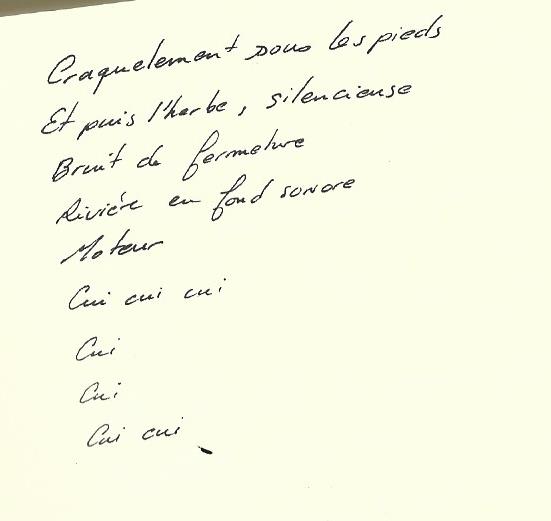 Craquelement sous les pieds
Et puis l'herbe, silencieuse
Bruit de fermeture
Rivière en fond sonore
Moteur
Cui cui cui
Cui
Cui
Cui cui